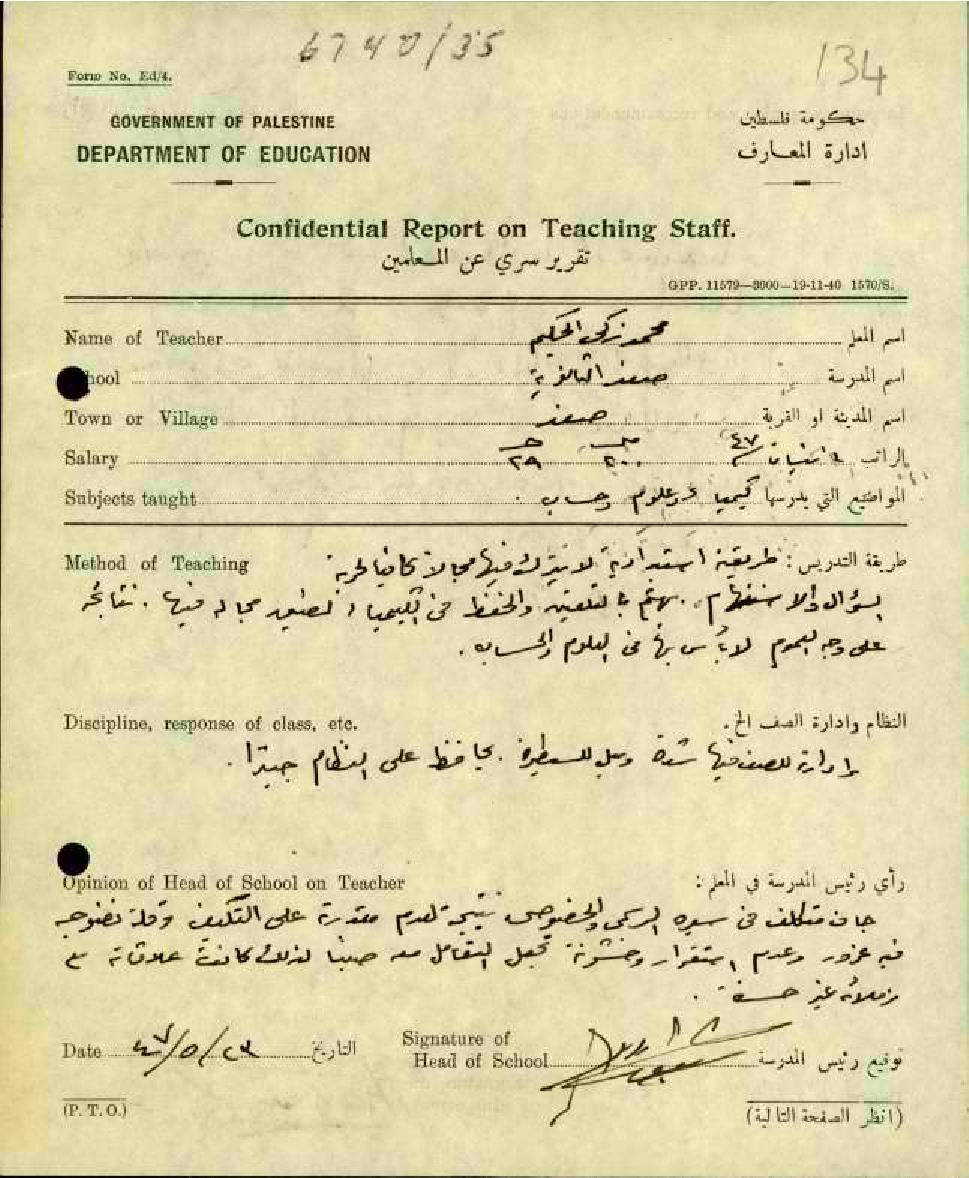 6740/35
134
Form No. Ed/4.
GOVERNMENT OF PALESTINE
حكومة فلسطين
DEPARTMENT OF EDUCATION
ادارة المعارف
Confidential Report on Teaching Staff.
تقرير سري عن المعلمين
GPP. 11579—3000—19-11-40 1570/S.
Name of Teacher محمد زكي الحكيم اسم المعلم
School صفد الثانوية اسم المدرسة
Town or Village صفد اسم المدينة او القرية
Salary ٢٩ ٢٠٠ ٤٧ الراتب
Subjects taught المواضيع التي يدرسها كيمياء وعلوم وحساب .
Method of Teaching طريقة التدريس : طريقة لا يترك فيها مجالا كافيا لحرية
السؤال والاستفهام . يهتم بالتلقين والحفظ في الكيمياء لضيق مجاله فيها . نتائجه
على وجه العموم لا بأس بها في العلوم والحساب .
Discipline, response of class, etc. النظام وادارة الصف الخ .
وادارة للصف فيها شدة وميل للسيطرة . يحافظ على النظام جيدا .
Opinion of Head of School on Teacher رأي رئيس المدرسة في المعلم :
جاف متكلف في سيره الرسمي والخصوصي نتيجة لعدم مقدرة على التكيف وقلة نضوجه
فيه غرور وعدم استقرار وخشونة تجعل التعامل معه صعبا لذلك كانت علاقاته مع
زملائه غير حسنة .
Date ٤٧/٥/٢٣ التاريخ
Signature of
Head of School توقيع رئيس المدرسة
(P. T. O.) (انظر الصفحة التالية)